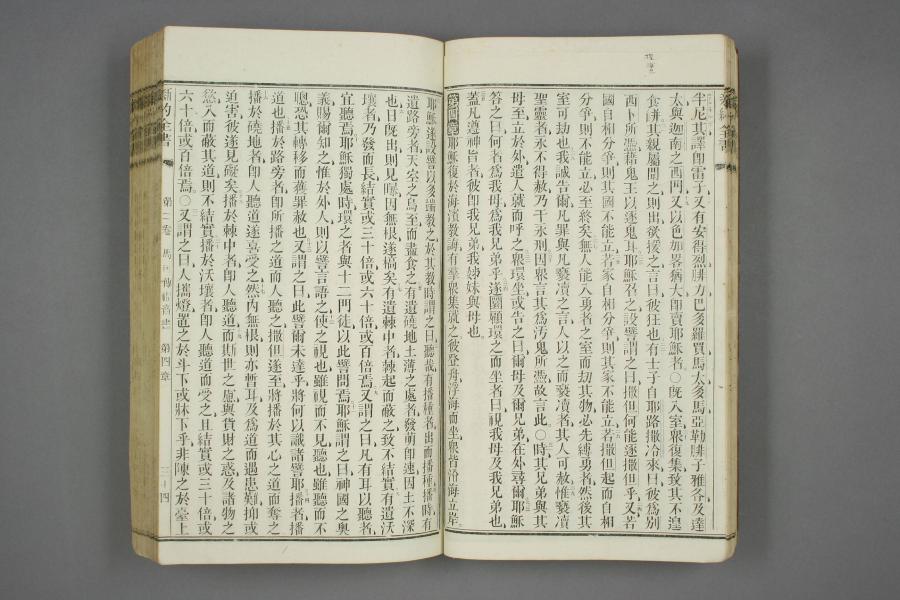 半尼其譯卽雷子又有安得烈腓力巴多羅買馬太多馬亞勒腓子雅各及達
太與迦南之西門又以色加畧猶大卽賣耶穌者○旣入室衆復集致其不遑
食耶其親屬聞之則出欲援之言曰彼狂也有士子自耶路撒冷來曰彼爲別
西卜所憑藉鬼王以逐鬼耳耶穌召之設譬謂之曰撒但何能逐撒但乎又若
國自相分爭則其國不能立若家自相分爭則其家不能立若撒但起而自相
分爭則不能立必至終矣無人能入勇者之室而刦其物必先縛勇者然後其
室可刦也我誠吿爾凡罪與凡褻凟之言人以之而褻凟者其人可赦惟褻凟
聖靈者永不得赦乃干永刑因衆言其爲汚鬼所憑故言此○時其兄弟與其
母至立於外遣人就而呼之衆環坐或吿之曰爾母及爾兄弟在外尋爾耶穌
答之曰何者爲我母爲我兄弟乎遂圜顧環之而坐者曰視我母及我兄弟也
蓋凡遵神旨者彼卽我兄弟我姊妹與母也
第四章 耶穌復於海濱敎誨有羣衆集就之彼登舟浮海而坐衆皆沿海立岸
耶穌遂設譬以多端敎之於其敎時謂之曰聽哉有播種者出而播種播時有
遺路旁者天空之鳥至而盡食之有遺磽地土薄之處者發萌卽速因土不深
也日旣出則見曝因無根遂槁矣有遺棘中者棘起而蔽之致不結實有遺沃
壤者乃發而長結實或三十倍或六十倍或百倍焉又謂之曰凡有耳以聽者
宜聽焉耶穌獨處時環之者與十二門徒以此譬問焉耶穌謂之曰神國之奧
義賜爾知之惟於外人則以譬言語之使之視也雖視而不見聽也雖聽而不
聰恐其轉移而獲罪赦也又謂之曰此譬爾未達乎將何以識諸譬耶播者播
道也播於路旁者卽所播之道而人聽之撒但遂至將播於其心之道而奪之
播於磽地者卽人聽道遂喜受之然內無根則亦暫耳及爲道而遇患難抑或
迫害彼遂見礙矣播於棘中者卽人聽道而斯世之慮與貨財之惑及諸物之
慾入而蔽其道則不結實播於沃壤者卽人聽道而受之且結實或三十倍或
六十倍或百倍焉○又謂之曰人攜燈置之於斗下或牀下乎非陳之於臺上
新約全書 第二卷 馬可傳福音書 第四章 三十四